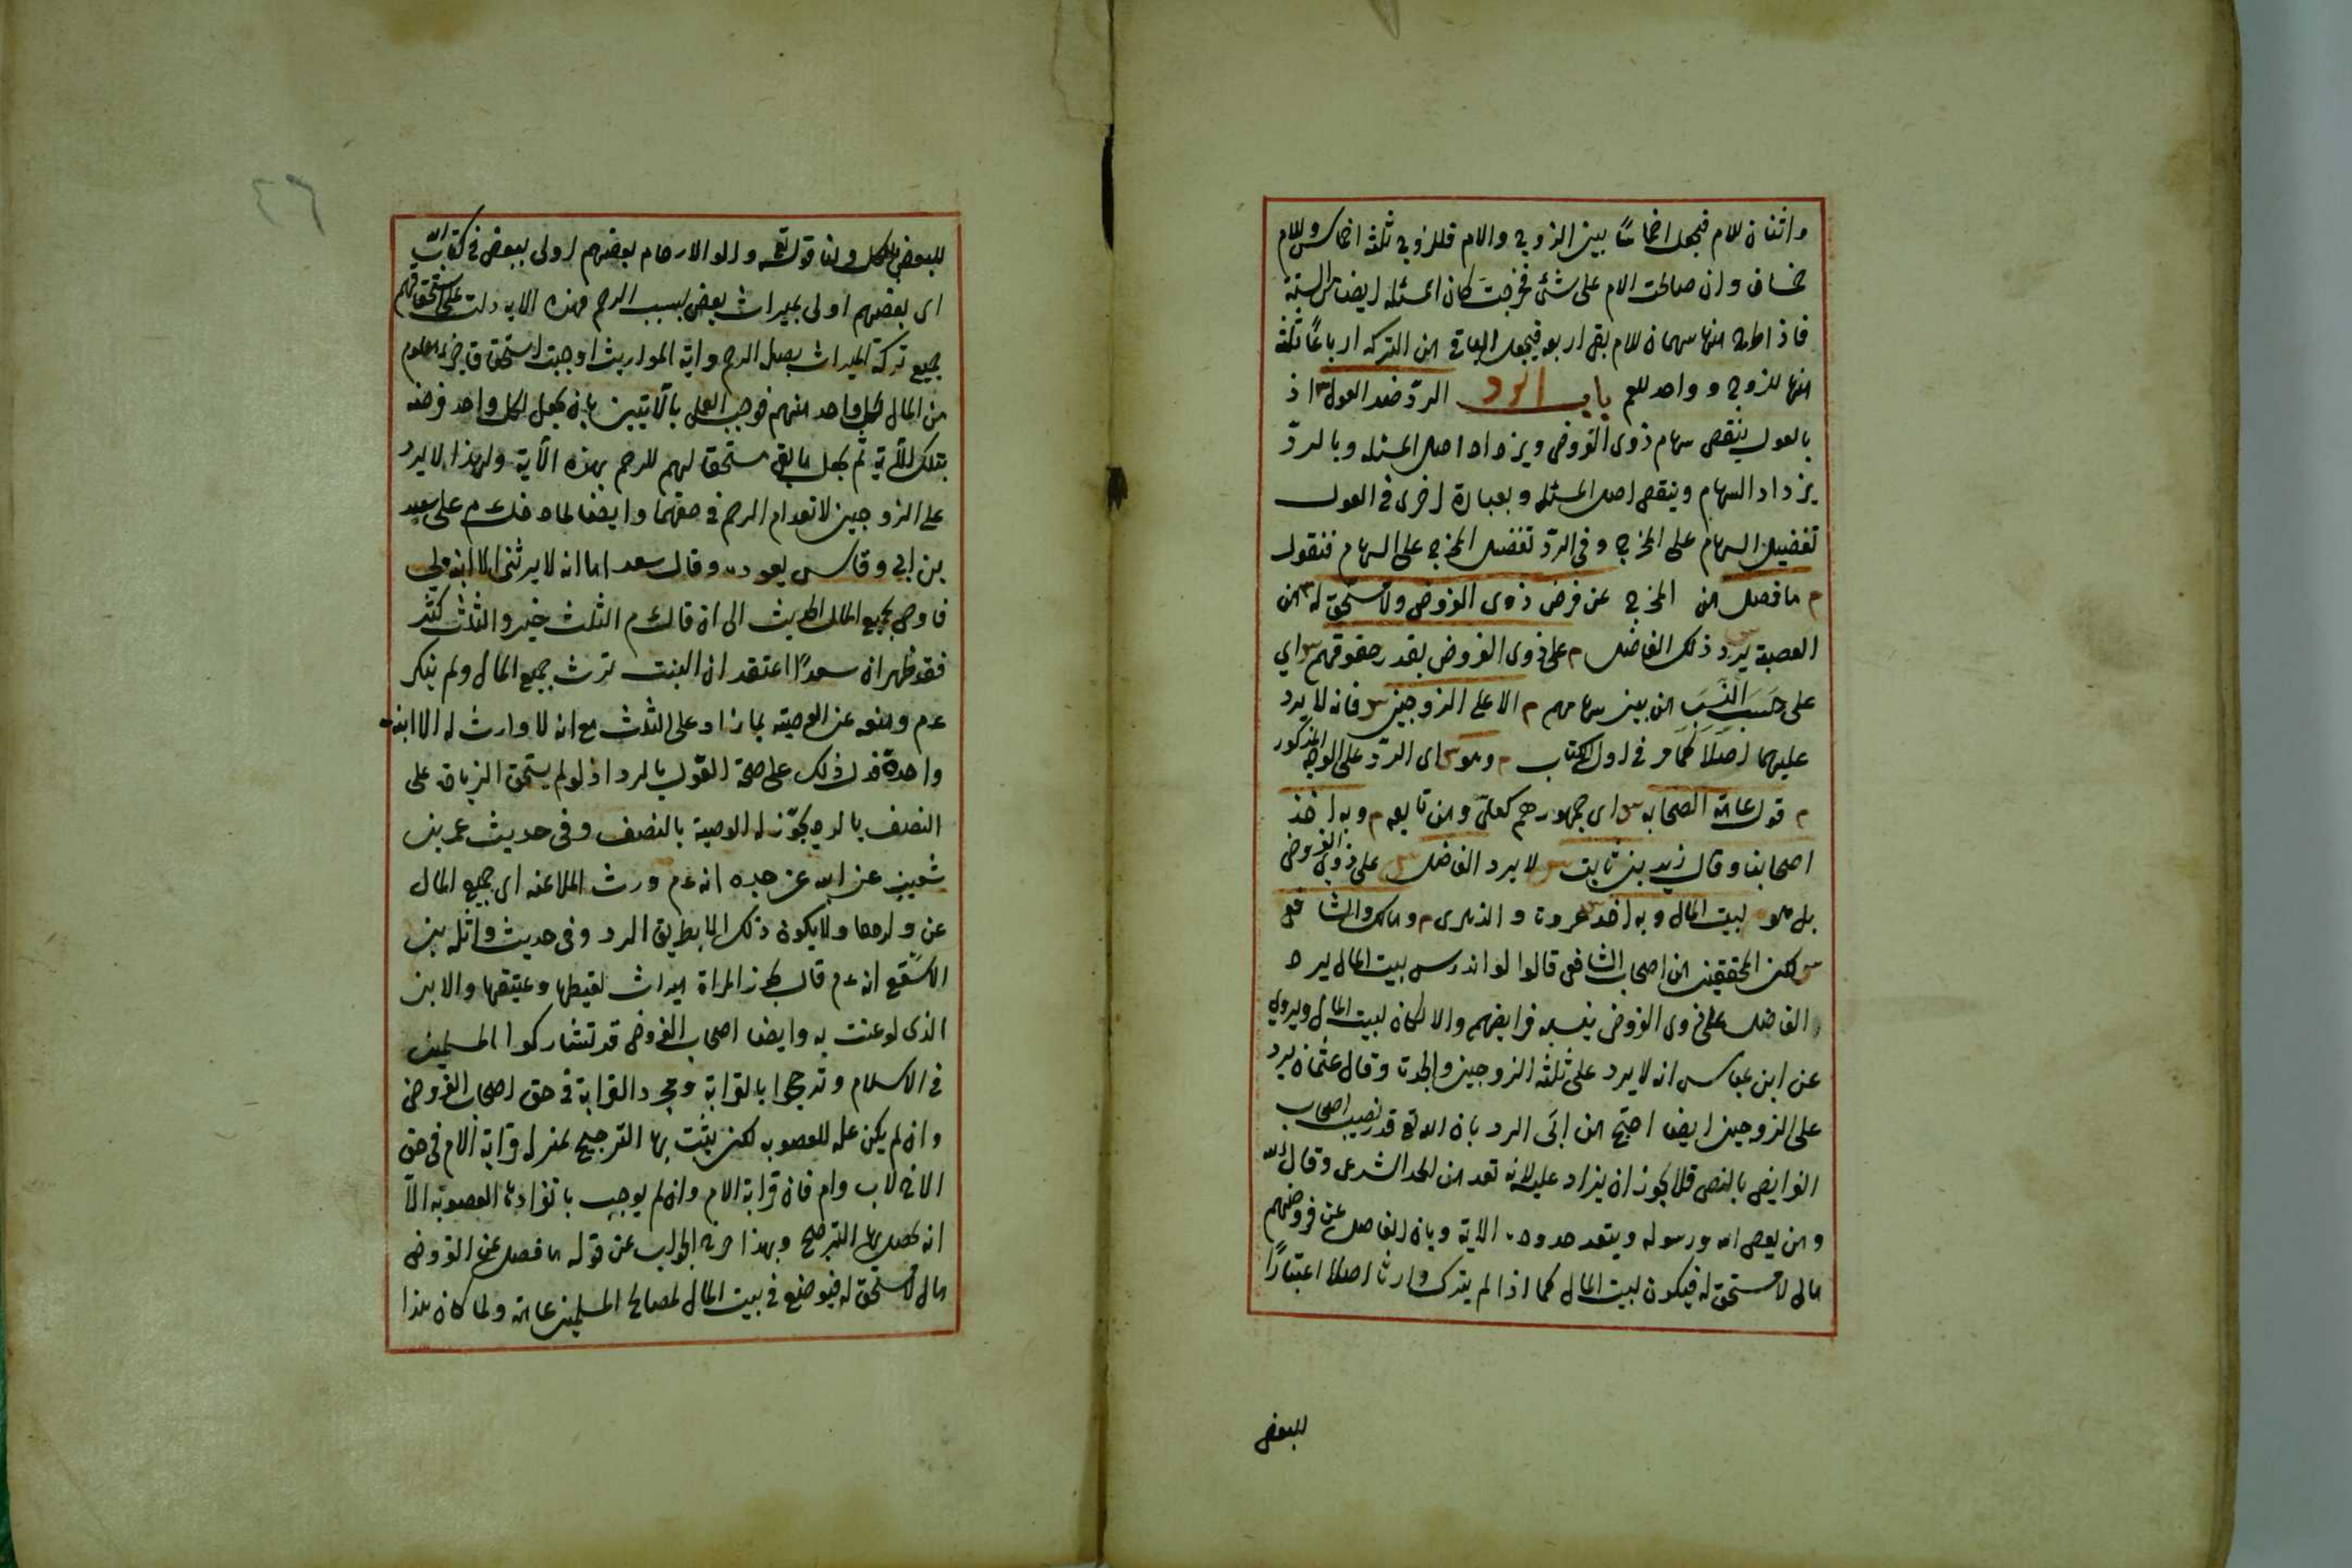 واثنان للام فيجعل اخماسا بين الزوج والام فللزوج ثلثة اخماس وللام
خمسان وان صالحت الام على شئ فخرجت كان المسئله ايضا من الستة
فاذا طرح منها سهمان للام بقى اربعه فيجعل الباقي من التركه ارباعًا ثلثة
منها للزوج وواحد للعم باب الرد الردّ ضد العول اذ
بالعول ينقص سهام ذوى الفروض ويزداد اصل المسئله وبالردّ
يزداد السهام وينقص اصل المسئله وبعبارة اخرى فى العول
تفضيل السهام على المخرج وفى الردّ تفضل المخرج على السهام فنقول
م ما فضل من المخرج عن فرض ذوى الفروض ولا مستحق له من
العصبة يرد ذلك الفاضل م على ذوى الفروض بقدر حقوقهم س اي
على حَسَبَ النِّسَبَ من بين سهامهم م الا على الزوجين س فانه لا يرد
عليهما اصلاً كما مر فى اول الكتاب م وهو س اى الردّ على الوجه المذكور
م قول عامة الصحابه س اى جمهورهم كعلىّ ومن تابعه م وبه اخذ
اصحابنا وقال زيد بن ثابت س لا يرد الفاضل س على ذوى الفروض
بل هو لبيت المال وبه اخذ عروة والزهرى م ومالك والشافعى
س لكن المحققين من اصحاب الشافعى قالوا لو اندرس بيت المال يرد
الفاضل على ذوى الفروض بنسبه فرايضهم والا لكان لبيت المال ويروى
عن ابن عباس انه لا يرد على ثلثه الزوجين والجدة وقال عثمان يرد
على الزوجين ايضا احتج من ابَى الرد بان الله تع قدر نصيب اصحاب
الفرايض بالنص فلا يجوز ان يزاد عليه لانه تعد من الحد الشرعى وقال الله
ومن يعص الله ورسوله ويتعد حدوده الاية وبان الفاضل عن فروضهم
مال لا مستحق له فيكون لبيت المال كما اذا لم يترك وارثا اصلا اعتبارًا
للبعض
٤٦
للبعض بالكل ولنا قوله تعه واولو الارحام بعضهم اولى ببعض فى كتاب الله
اى بعضهم اولى بميراث بعض بسبب الرحم فهذه الايه دلت على استحقاقهم
جميع تركة الميراث بصلة الرحم واية المواريث اوجبت استحقاق جزء معلوم
من المال لكل واحد منهم فوجب العمل بالآيتين بان يجعل لكل واحد فرضه
بتلك الآية ثم يجعل ما بقى مستحقا لهم للرحم بهذه الآية ولهذا لا يرد
على الزوجين لانعدام الرحم فى حقهما وايضا لما دخل ءم على سعد
بن ابي وقاس يعوده وقال سعد اما انه لا يرثنى الا ابنة لي
فاوصى بجميع المال الحديث الى ان قال ءم الثلث خير والثلث كثير
فقد ظهر ان سعدًا اعتقد ان البنت ترث جميع المال ولم ينكر
ءم ومنعه عن الوصية بما زاد على الثلث مع انه لا وارث له الا ابنة
واحدة فدل ذلك على صحة القول بالرد اذ لو لم يستحق الزيادة على
النصف بالرد يجوّز له الوصية بالنصف وفى حديث عمر بن
شعيب عن ابيه عن جده انه ءم ورث الملاعنه اى جميع المال
عن ولدها ولا يكون ذلك الا بطريق الرد وفى حديث واثله بن
الاسقع انه ءم قال تحرز المراة ميراث لقيطها وعتيقها والابن
الذى لوعنت به وايضا اصحاب الفروض قد تشاركوا المسلمين
فى الاسلام وترجحوا بالقرابة ومجرد القرابة فى حق اصحاب الفروض
وان لم يكن عله للعصوبه لكن يثبت بها الترجيح بمنزله قرابة الام فى حق
الاخ لاب وام فان قرابة الام وان لم يوجب بانفرادها العصوبة الا
انه يحصل بها الترجيح وبهذا خرج الجواب عن قوله ما فضل عن الفروض
مال لا مستحق له فيوضع فى بيت المال لمصالح المسلمين عامة ولما كان هذا